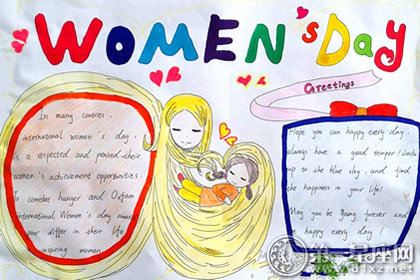 WOMEN's Day
Greetings
In many conries,
international women's day,
is a respected and praised their
women's achievement opportunities.
To combat hunger and Oxfam
International Women's day award
your differ in their life
inspiring women
Hope you can happy every day,
always have a good temper! Look
up to the blue sky, and find
the happiness in your life!
May you be young forever and
happy every day!
第一星座网
www.d1xz.net